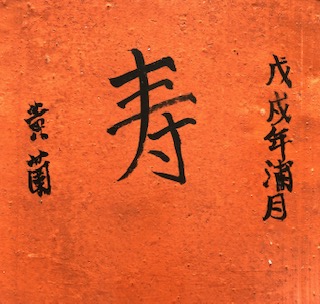 戊戌年浦月
寿
黄蘭